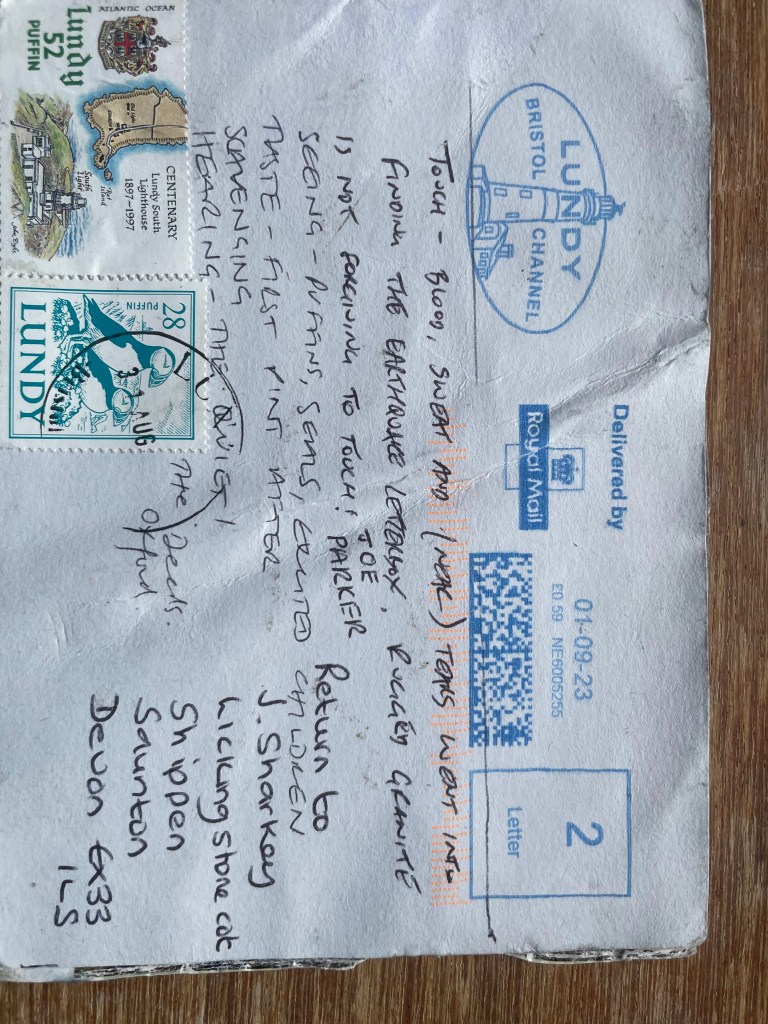 ATLANTIC OCEAN
Lundy
52
PUFFIN
CENTENARY
Lundy South
Lighthouse
1897-1997
South
Light
Rat
Island
28
PUFFIN
LUNDY
31 AUG
LUNDY
BRISTOL CHANNEL
Delivered by
Royal Mail
01-09-23
£0.59 NE6005255
2
Letter
TOUCH - BLOOD, SWEAT AND (NEAR) TEARS WENT INTO
FINDING THE EARTHQUAKE LETTERBOX. RUGGED GRANITE
IS NOT FORGIVING TO TOUCH! JOE PARKER
SEEING - PUFFINS, SEALS, EXCITED CHILDREN
TASTE - FIRST PINT AFTER
SCAVENGING
HEARING - THE QUIET!
The Deeds.
Oxford
Return to
J. Sharkey
Licking stone cot
Shippen
Saunton
Devon EX33
1LS